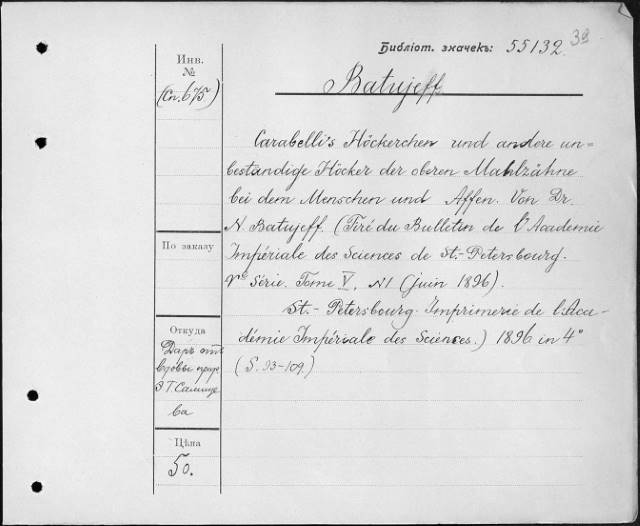 Библіот. значекъ: 55132 39
Batujeff
Инв.
№
(Сп. 675)
Carabelli's Höckerchen und andere un=
beständige Höcker der oberen Mahlzähne
bei dem Menschen und Affen. Von Dr.
N Batujeff. (Tiré du Bulletin de l'Academie
Impériale des Sciences de St.-Petersbourg.
Vᵉ Série. Tome V, N1 (juin 1896).
St.-Petersbourg. Imprimerie de l'Aca-
démie Impériale des Sciences.) 1896 in 4°
(S. 93-109.)
По заказу
Откуда
Даръ отъ
вдовы
З Г. Салище
ва
Цѣна
50.